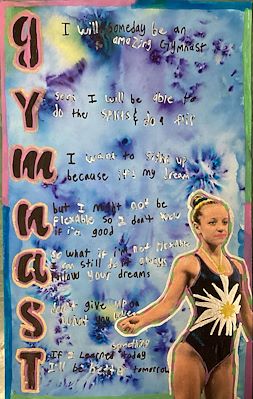 gymnasT
I will someday be an
amazing Gymnast
soon I will be able to
do the splits & do a flip
I want to sign up
because it's my dream
but I might not be
flexable so I don't know
if i'm good
so what if i'm not flexable
I can still just always
follow your dreams
don't give up on
what you
something
If I learned today
I'll be better tomorrow